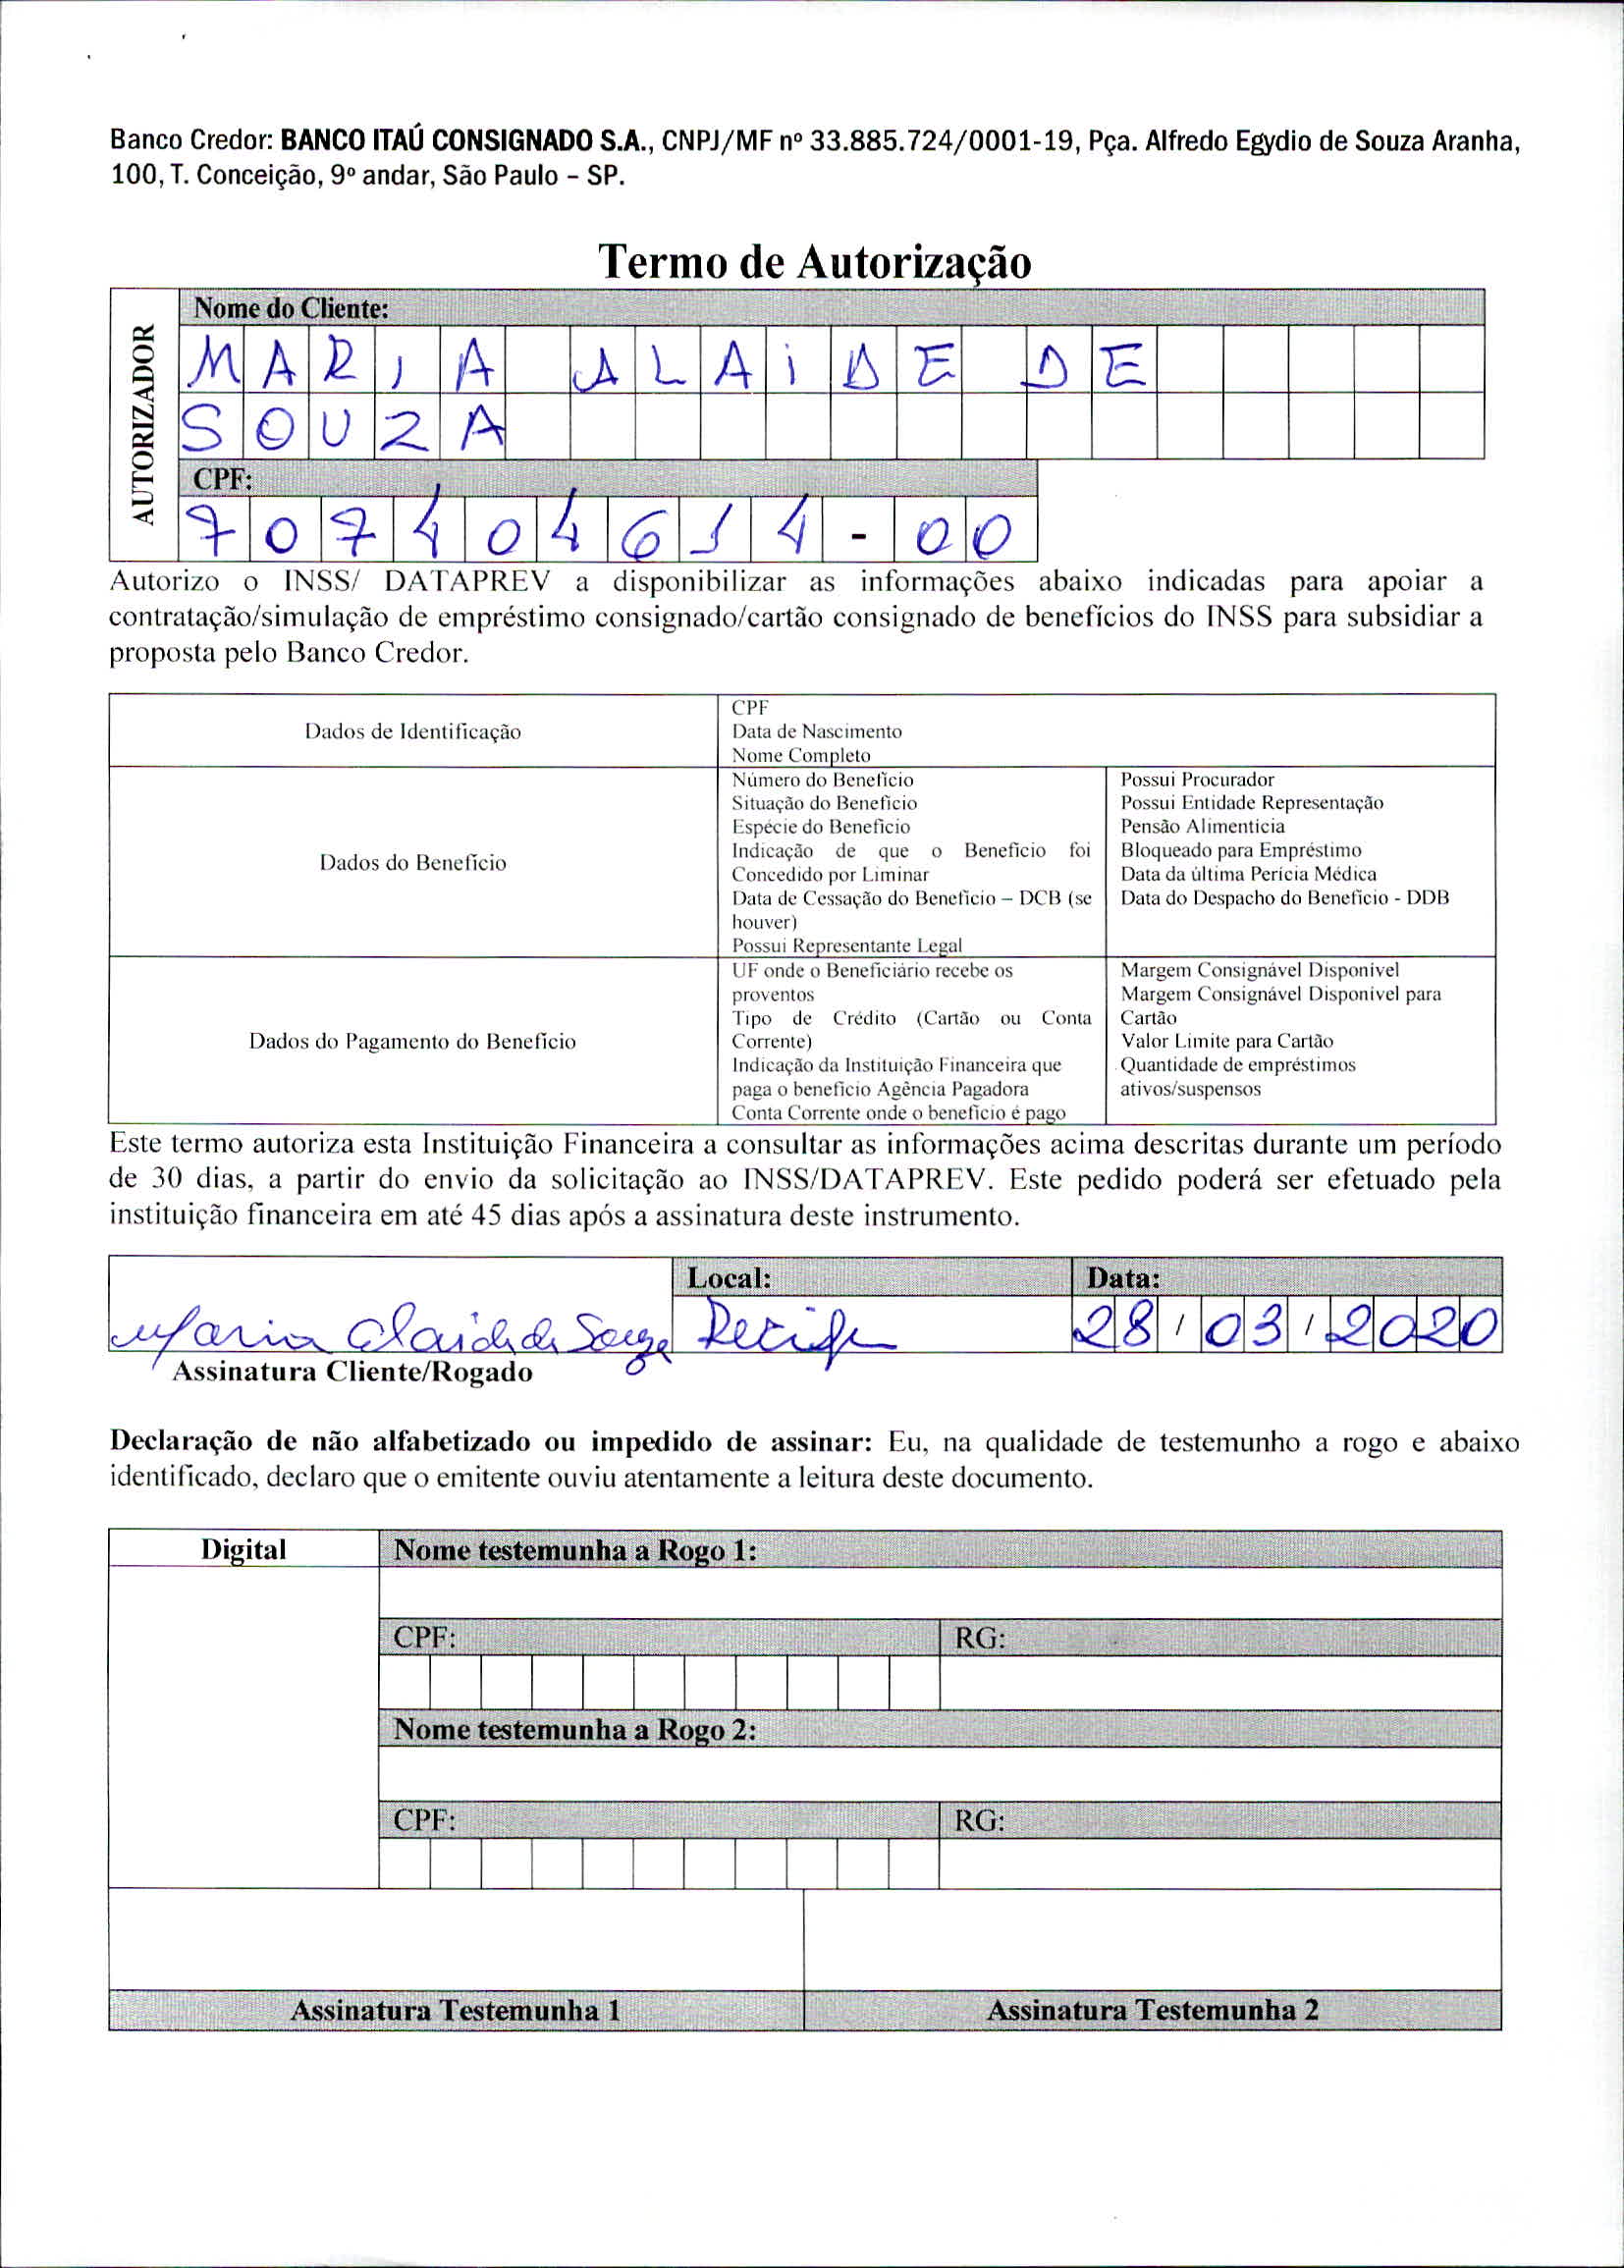 Banco Credor: BANCO ITAÚ CONSIGNADO S.A., CNPJ/MF nº 33.885.724/0001-19, Pça. Alfredo Egydio de Souza Aranha,
100, T. Conceição, 9º andar, São Paulo – SP.
Termo de Autorização
AUTORIZADOR
Nome do Cliente:
MARIA ALAIDE DE
SOUZA
CPF:
707404614-00
Autorizo o INSS/ DATAPREV a disponibilizar as informações abaixo indicadas para apoiar a
contratação/simulação de empréstimo consignado/cartão consignado de benefícios do INSS para subsidiar a
proposta pelo Banco Credor.
Dados de Identificação
CPF
Data de Nascimento
Nome Completo
Dados do Benefício
Número do Benefício
Situação do Benefício
Espécie do Benefício
Indicação de que o Benefício foi
Concedido por Liminar
Data de Cessação do Benefício – DCB (se
houver)
Possui Representante Legal
Possui Procurador
Possui Entidade Representação
Pensão Alimentícia
Bloqueado para Empréstimo
Data da última Perícia Médica
Data do Despacho do Benefício - DDB
Dados do Pagamento do Benefício
UF onde o Beneficiário recebe os
proventos
Tipo de Crédito (Cartão ou Conta
Corrente)
Indicação da Instituição Financeira que
paga o benefício Agência Pagadora
Conta Corrente onde o benefício é pago
Margem Consignável Disponível
Margem Consignável Disponível para
Cartão
Valor Limite para Cartão
Quantidade de empréstimos
ativos/suspensos
Este termo autoriza esta Instituição Financeira a consultar as informações acima descritas durante um período
de 30 dias, a partir do envio da solicitação ao INSS/DATAPREV. Este pedido poderá ser efetuado pela
instituição financeira em até 45 dias após a assinatura deste instrumento.
Local:
Data:
Maria Alaide de Souza
Recife
28/03/2020
Assinatura Cliente/Rogado
Declaração de não alfabetizado ou impedido de assinar: Eu, na qualidade de testemunho a rogo e abaixo
identificado, declaro que o emitente ouviu atentamente a leitura deste documento.
Digital
Nome testemunha a Rogo 1:
CPF:
RG:
Nome testemunha a Rogo 2:
CPF:
RG:
Assinatura Testemunha 1
Assinatura Testemunha 2